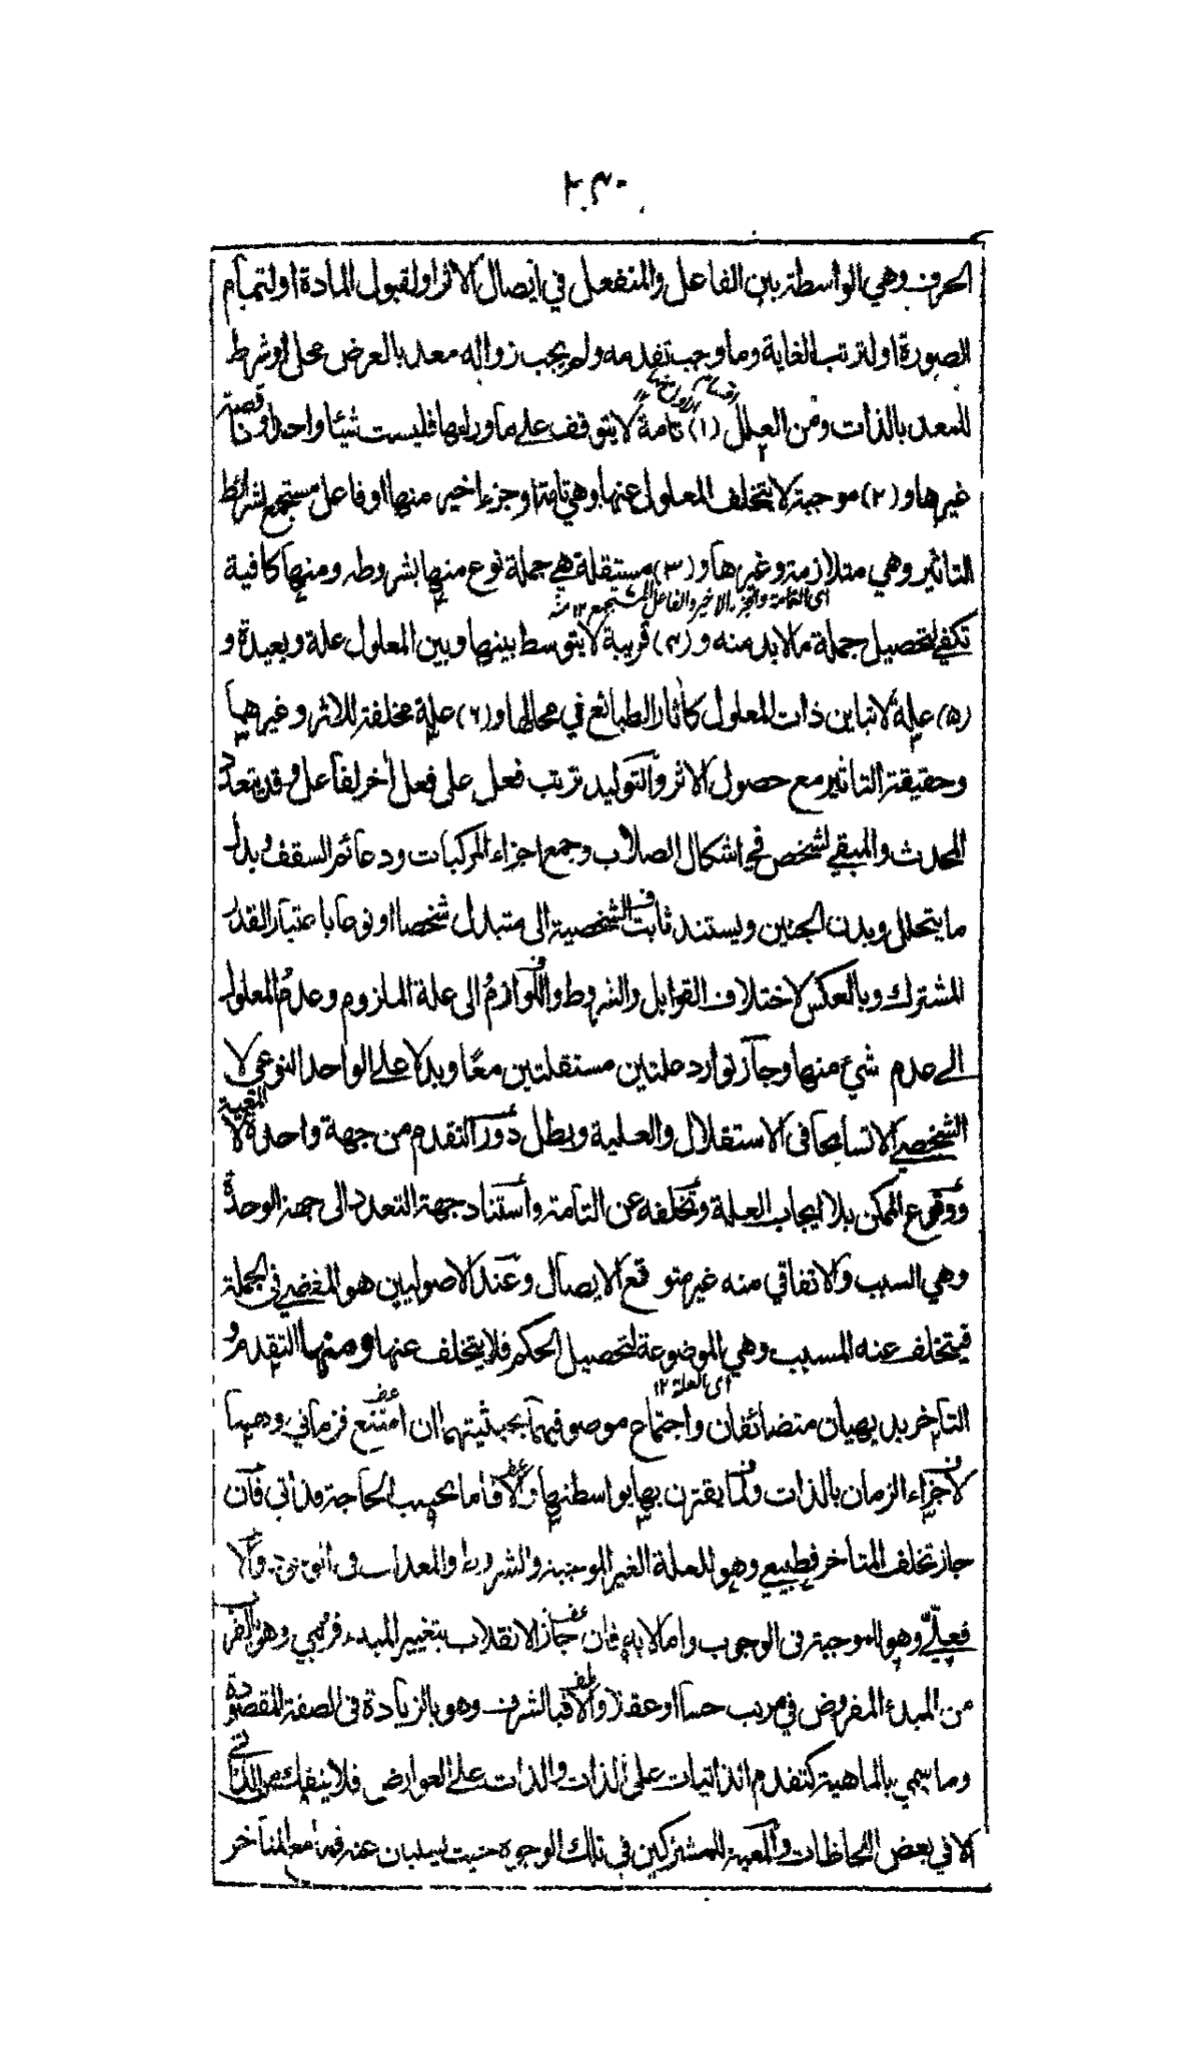 الحرف وهي الواسطة بين الفاعل والمنفعل في ايصال الاثر او لقبول المادة او لتمام
الصورة او لترتب الغاية وما وجب تقدمه ولم يجب زواله معد بالعرض محل او شرط
للمعد بالذات ومن العلل (١) تامة لا يتوقف على ما ورائها فليست شيئا واحدا وناقصة
غيرها و (٢) موجبة لا يتخلف المعلول عنها وهي تامة او جزء اخير منها او فاعل مستجمع لشرائط
التاثير وهي متلازمة وغيرها و (٣) مستقلة هي جملة نوع منها بشروطه ومنها كافية
اى التامة والجزء الاخير والفاعل المستجمع ١٢ منه
تكفي لتحصيل جملة ما لابد منه و (٤) قريبة لا يتوسط بينها وبين المعلول علة وبعيدة و
(٥) علة لا تباين ذات المعلول كآثار الطبائع في محالها و (٦) علة مخلفة للاثر وغيرهما
وحقيقة التاثير مع حصول الاثر والتوليد ترتب فعل على فعل اخر لفاعل وقد يتعدد
المحدث والمبقي لشخص في اشكال الصلاب وجمع اجزاء المركبات ودعائم السقف وبدل
ما يتحلل وبدن الجنين ويستند ثابت الشخصية الى متبدل شخصا او نوعا باعتبار القدر
المشترك وبالعكس لاختلاف القوابل والشروط واللوازم الى علة الملزوم وعدم المعلول
الى عدم شيء منها وجاز توارد علتين مستقلتين معًا وبدلا على الواحد النوعي لا
الشخصي الا تسامحا فى الاستقلال والعلية وبطل دور التقدم من جهة واحدة لا المعية
ووقوع الممكن بلا ايجاب العلة وتخلفه عن التامة واستناد جهة التعدد الى جهة الوحدة
وهي السبب والاتفاقي منه غير متوقع الايصال وعند الاصوليين هو المفضي في الجملة
فيتخلف عنه المسبب وهي الموضوعة لتحصيل الحكم فلا يتخلف عنها ومنها التقدم و
اى العلة ١٢
التاخر بديهيان متضائفان واجتماع موصوفيهما بحيثيتهما ان امتنع فزماني وهما
لاجزاء الزمان بالذات ولما يقترن بها بواسطتها والا فاما بحسب الحاجة فذاتي فان
جاز تخلف المتاخر فطبعي وهو للعلة الغير الموجبة والشروط والمعدات في والا
فعليّ وهو الموجبة فى الوجوب واما لا به فان جاز الانقلاب بتغيير المبدء فرتبي وهو القرب
من المبدء المفروض في مرتب حسا او عقلا والا فبالشرف وهو بالزيادة فى الصفة المقصودة
وما سمي بالماهية كتقدم الذاتيات على الذات والذات على العوارض فلا ينفك عن الذاتي
الا في بعض اللحاظات والمعية للمشتركين في تلك الوجوه حيث يسلبان عنه فهما مع المتاخر